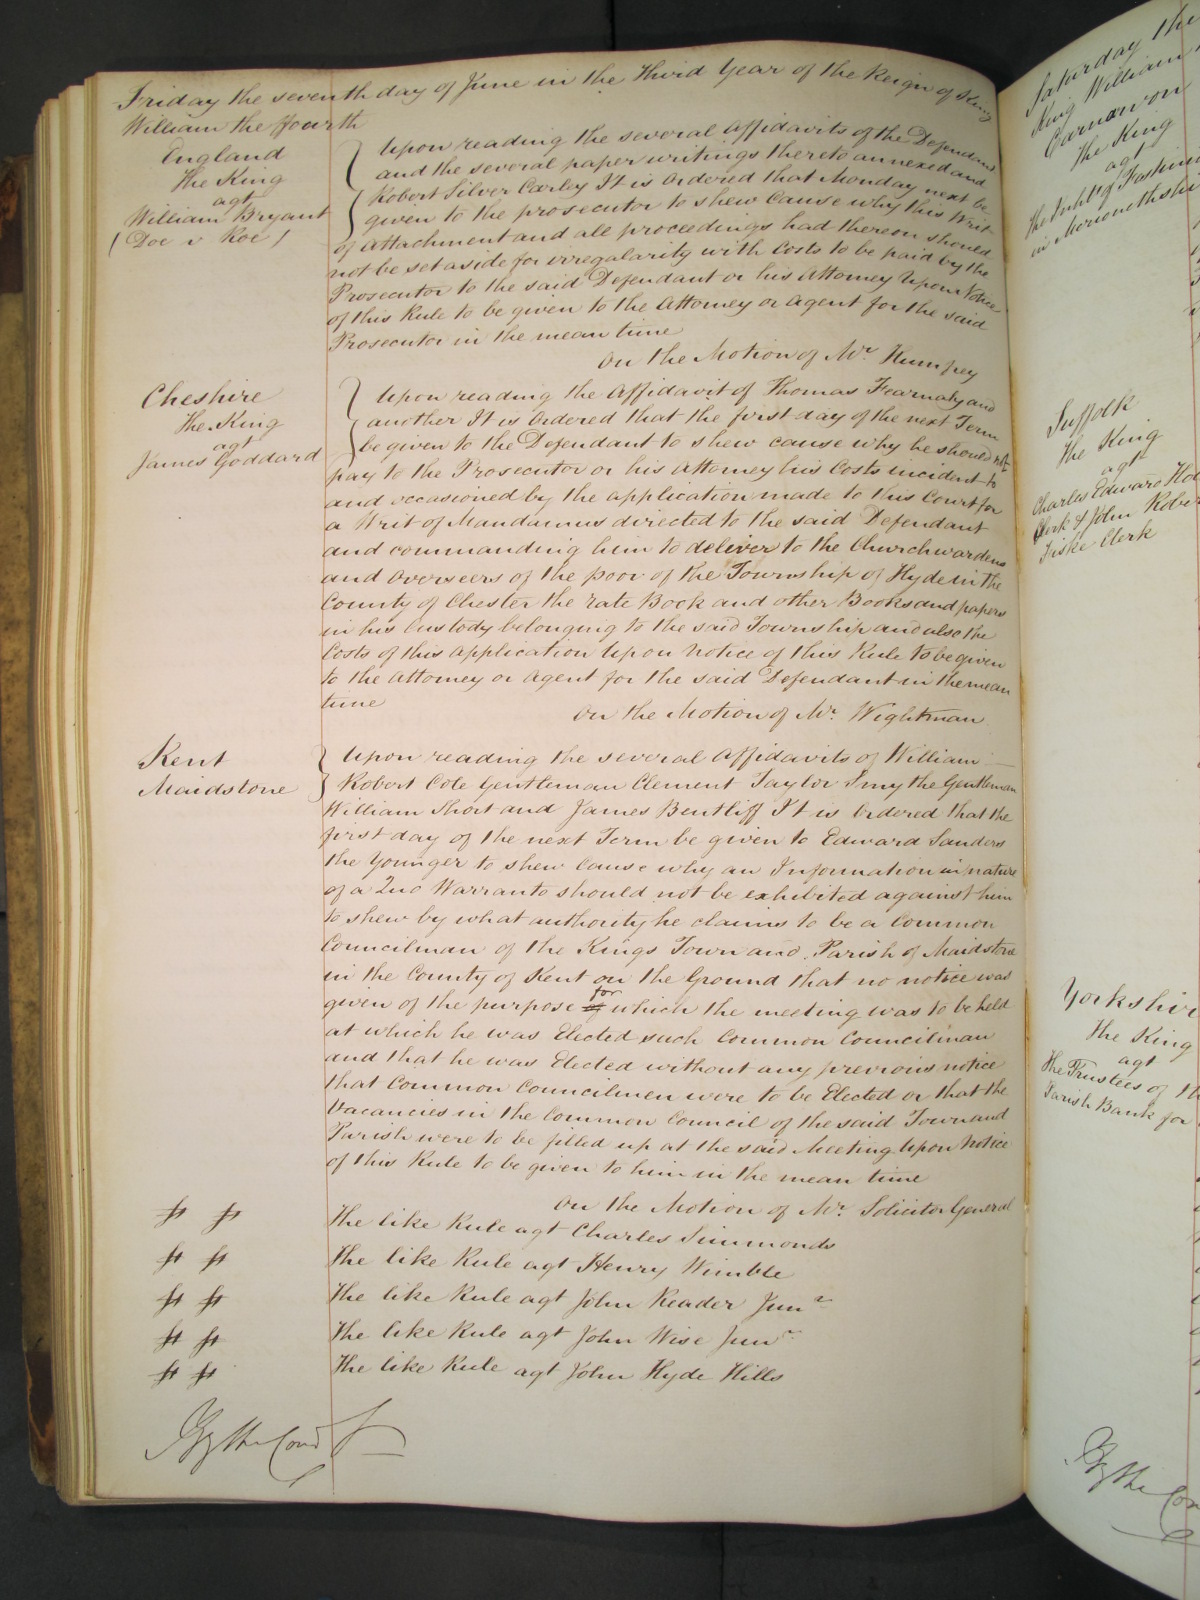 Friday the seventh day of June in the Third Year of the Reign of King
William the Fourth
England
The King
agt
William Bryant
(Doe v Roe)
Upon reading the several affidavits of the Defendant
and the several paper writings thereto annexed and
Robert Silver Corley It is Ordered that Monday next be
given to the prosecutor to shew Cause why this Writ
of attachment and all proceedings had thereon should
not be set aside for irregalarity with Costs to be paid by the
Prosecutor to the said Defendant or his Attorney Upon Notice
of this Rule to be given to the Attorney or agent for the said
Prosecutor in the mean time
On the Motion of Mr. Humfrey
Cheshire
The King
agt
James Goddard
Upon reading the affidavit of Thomas and
another It is Ordered that the first day of the next Term
be given to the Defendant to shew cause why he should not
pay to the Prosecutor or his Attorney his Costs incident to
and occasioned by the application made to this Court for
a Writ of Mandamus directed to the said Defendant
and commanding him to deliver to the Churchwardens
and Overseers of the poor of the Township of Hyde in the
County of Chester the rate Book and other Books and papers
in his Custody belonging to the said Township and also the
Costs of this application Upon notice of this Rule to be given
to the Attorney or agent for the said Defendant in the mean
time
On the Motion of Mr. Wightman
Kent
Maidstone
Upon reading the several affidavits of William
Robert Cole Gentleman Clement Taylor Smythe Gentleman
William Short and James Bentliff It is Ordered that the
first day of the next Term be given to Edward Sanders
the Younger to shew Cause why an Information in nature
of a Quo Warranto should not be exhibited against him
to shew by what authority he claims to be a Common
Councilman of the Kings Town and Parish of Maidstone
in the County of Kent on the Ground that no notice was
given of the purpose of for which the meeting was to be held
at which he was Elected such Common Councilman
and that he was Elected without any previous notice
that Common Councilmen were to be Elected or that the
Vacancies in the Common Council of the said Town and
Parish were to be filled up at the said Meeting Upon Notice
of this Rule to be given to him in the mean time
On the Motion of Mr. Solicitor General
The like Rule agt Charles Simmonds
The like Rule agt Henry Wimble
The like Rule agt John Reader Junr
The like Rule agt John Wise Junr
The like Rule agt John Hyde Hills
By the Court
Saturday the
King William
Carnarvon
The King
agt
The Inhts of
in Merionethshi
Suffolk
The King
agt
Charles Edward
Clerk & John Rober
Fiske Clerk
Yorkshir
The King
agt
The Trustees of th
Parish Bank for
By the Cou